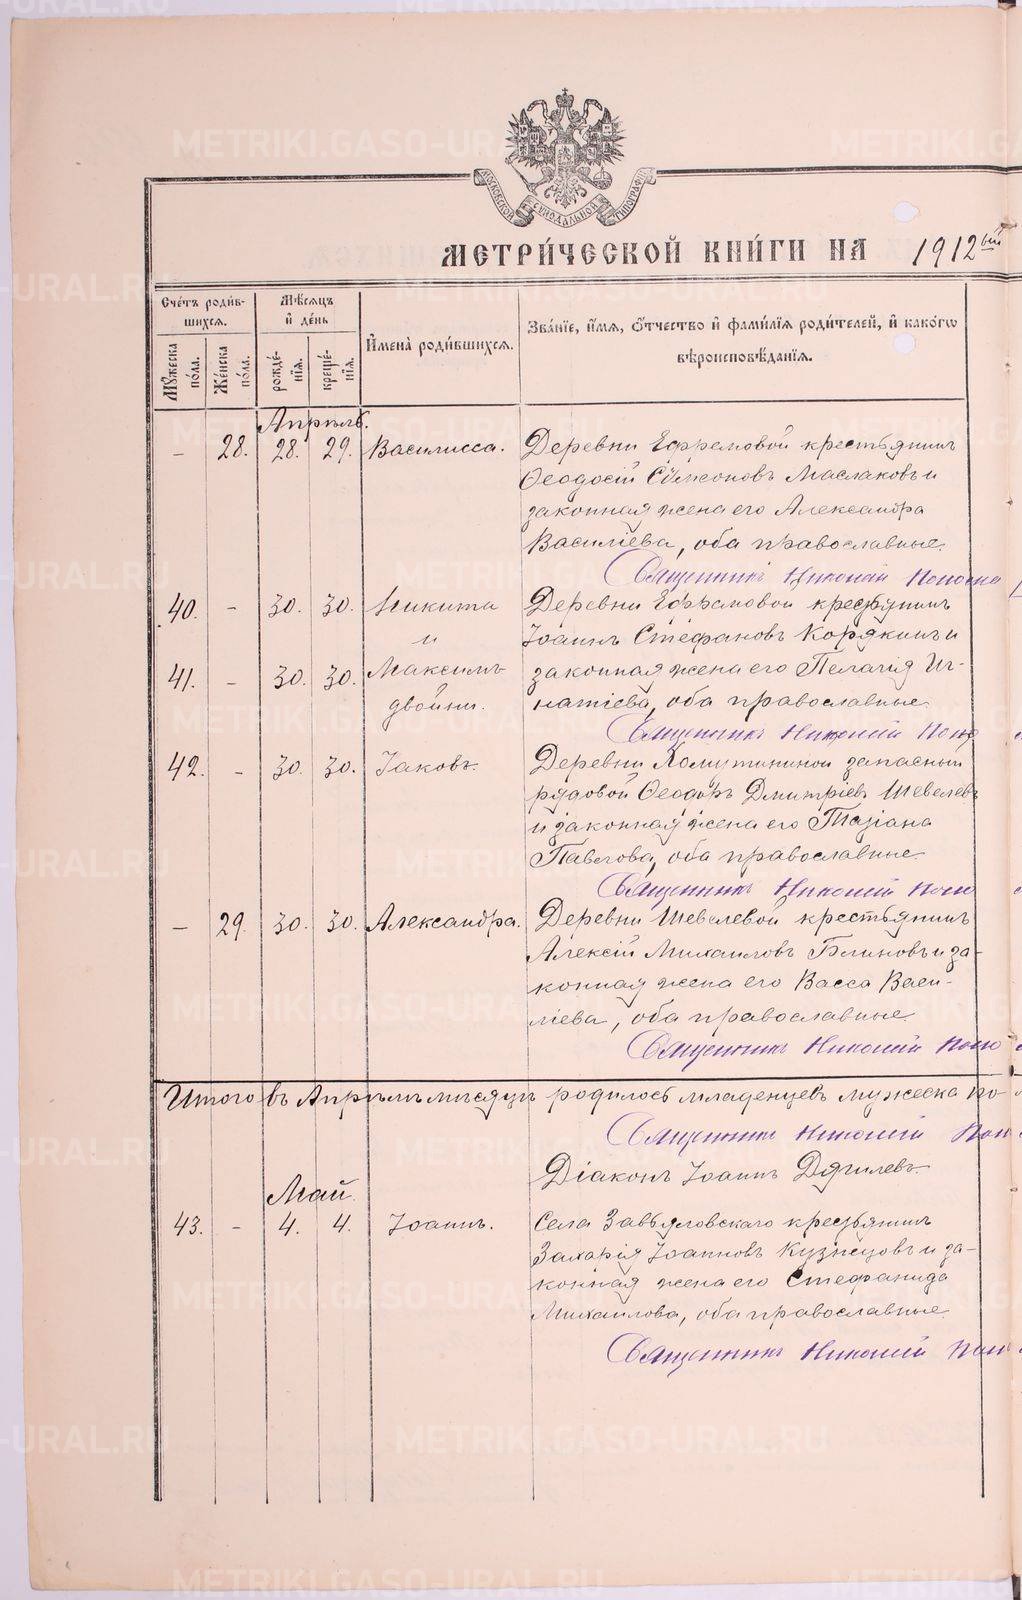 МОСКОВСКОЙ СѴНОДАЛЬНОЙ ТИПОГРАФІИ
МЕТРИ́ЧЕСКОЙ КНИ́ГИ НА 1912ый
Сче́тъ роди́вшихся.
Мѣ́сяцъ и де́нь
Имена̀ роди́вшихся.
Зва́нїе, и́мя, о́тчество и фами́лїя роди́телей, и како́гѡ
вѣроисповѣ́данїя.
Мꙋ́жеска по́ла.
Же́нска по́ла.
рожде́нїя.
креще́нїя.
Апрѣль.
– 28. 28. 29. Василисса. Деревни Ефремовой крестьянинъ
Ѳеодосій Сѵмеоновъ Маслаковъ и
законная жена его Александра
Василіева, оба православные.
Священникъ Николай
40. – 30. 30. Никита Деревни Ефремовой крестьянинъ
и Іоаннъ Стефановъ Корякинъ и
41. – 30. 30. Максимъ законная жена его Пелагія Иг-
двойни. натіева, оба православные.
Священникъ Николай
42. – 30. 30. Іаковъ. Деревни Хомутининой запасный
рядовой Ѳеодоръ Дмитріевъ Шевелевъ
и законная жена его Татіана
Павлова, оба православные.
Священникъ Николай
– 29. 30. 30. Александра. Деревни Шевелевой крестьянинъ
Алексій Михаиловъ Блиновъ и за-
конная жена его Васса Васи-
ліева, оба православные.
Священникъ Николай
Итого въ Апрѣлѣ мѣсяцѣ родилось младенцевъ мужеска по-
Священникъ Николай
Діаконъ Іоаннъ Дягилевъ.
Май.
43. – 4. 4. Іоаннъ. Села Завьяловскаго крестьянинъ
Захарія Іоанновъ Кузнецовъ и за-
конная жена его Стефанида
Михаилова, оба православные.
Священникъ Николай
METRIKI.GASO-URAL.RU